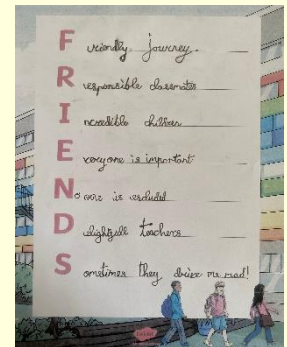 F riendly journey.
R esponsible classmates
I ncredible children
E veryone is important
N o one is excluded
D elightfull teachers
S ometimes they drive me mad!